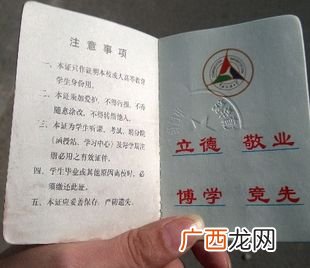 注意事项
一、本证只作证明本校成人高等教育
学生身份用。
二、本证须加爱护,不得污损,不得
随意涂改,不得转借他人。
三、本证为学生听课、考试、到分院
(函授站、学习中心)及每学期注
册必用之有效证件。
四、学生毕业或其他原因离校时,必
须缴还此证。
五、本证应妥善保存,严防遗失。
立德 敬业
博学 竞先
广西龙网